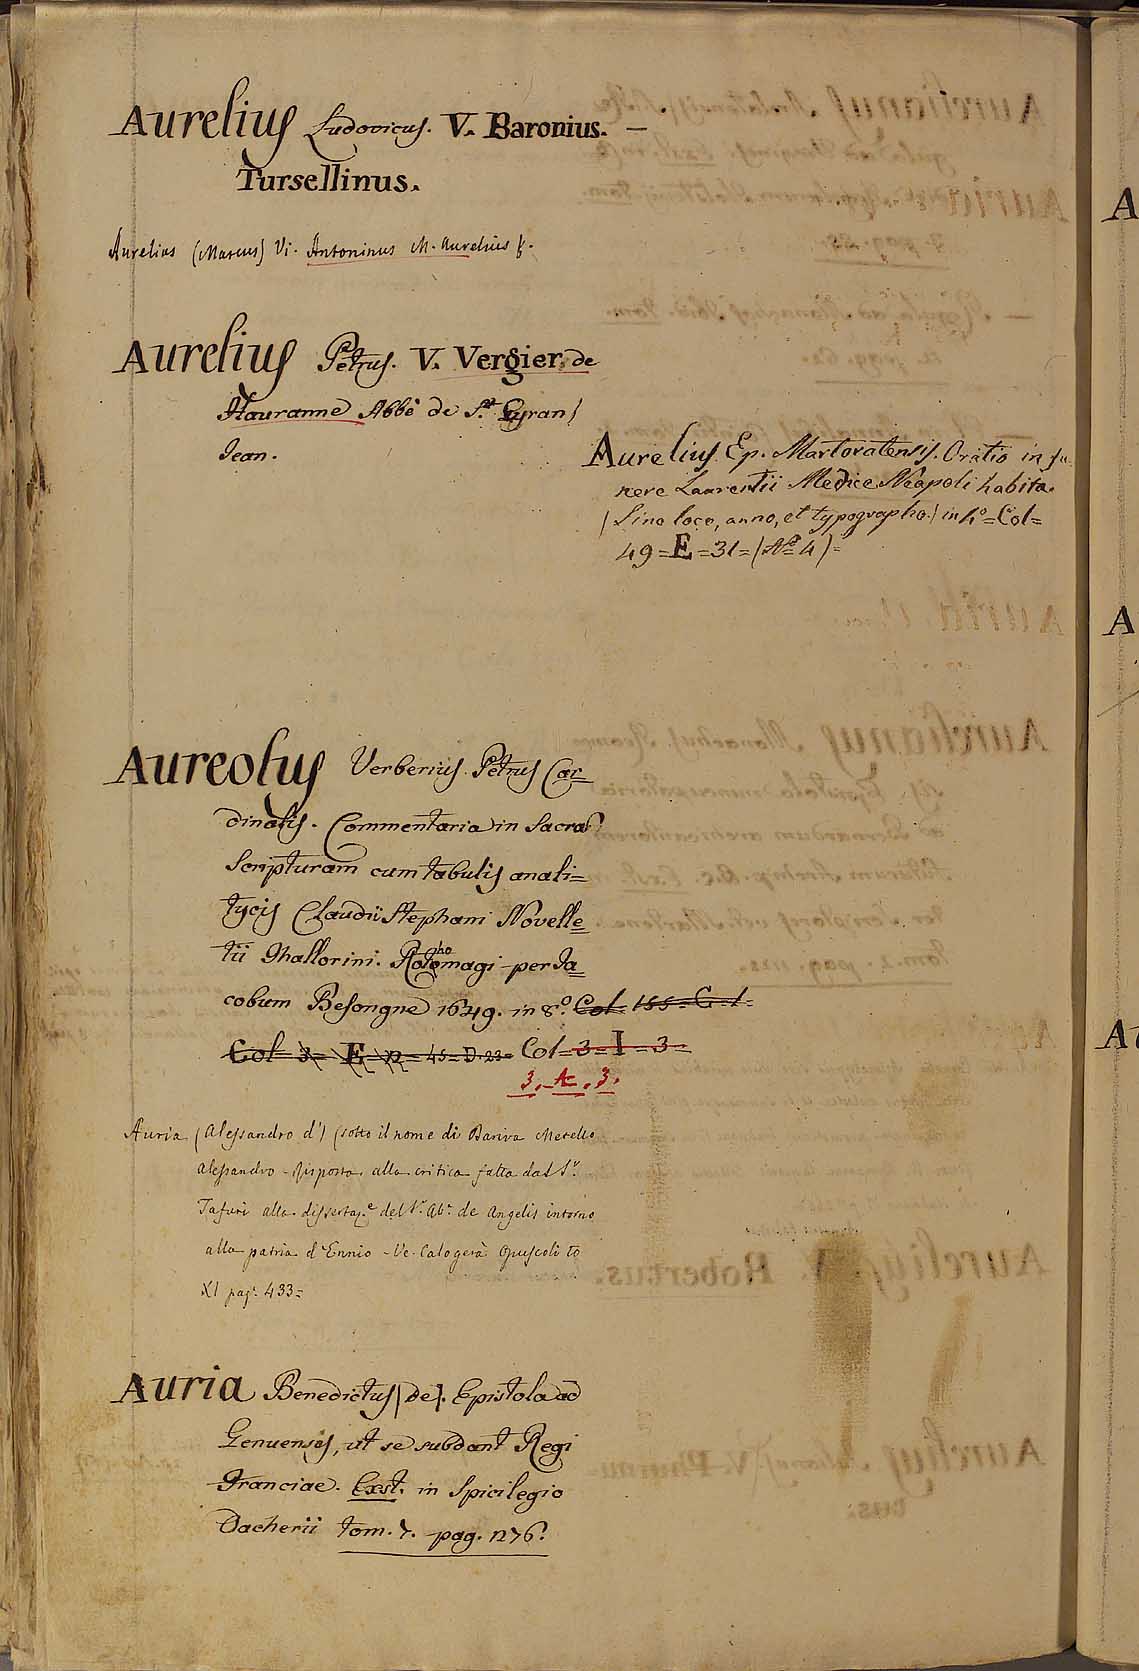 Aurelius Ludovicus. V. Baronius. —
Tursellinus.
Aurelius (Marcus) Vi. Antoninus M. Aurelius
Aurelius Petrus. V. Vergier, de
Hauranne Abbé de S.t Cyran)
Jean.
Aurelius Ep. Martoratensis. Oratio in fu
nere Laurentii Medice Neapoli habita.
(Sine loco, anno, et typographo.) in 4.º = Col =
49 = E = 31 = (Nº 4) =
Aureolus Verberius Petrus Car=
dinalis. Commentaria in Sacra
Scripturam cum tabulis anali=
tycis Claudii Stephani Novelle=
tii Ghallorini. Rothomagi per Ja=
cobum Besongne 1649. in 8.º Col 155 = G = 1 =
Col = 3 = E = 12 = 45 = D. 23 = Col = 3 = I = 3 =
3. A. 3.
Auria (Alessandro d') (sotto il nome di Bariva Metello
Alessandro - Risposta alla critica fatta dal S.r
Tafuri alla dissertaz.e del S.r Ab.e de Angelis intorno
alla patria d'Ennio - Ve. Calogerà Opuscoli to
XI pag. 433 =
Auria Benedictus (de). Epistola ad
Genuenses, ut se subdant Regi
Franciae. Exst. in Spicilegio
Dacherii tom. 7. pag. 276.